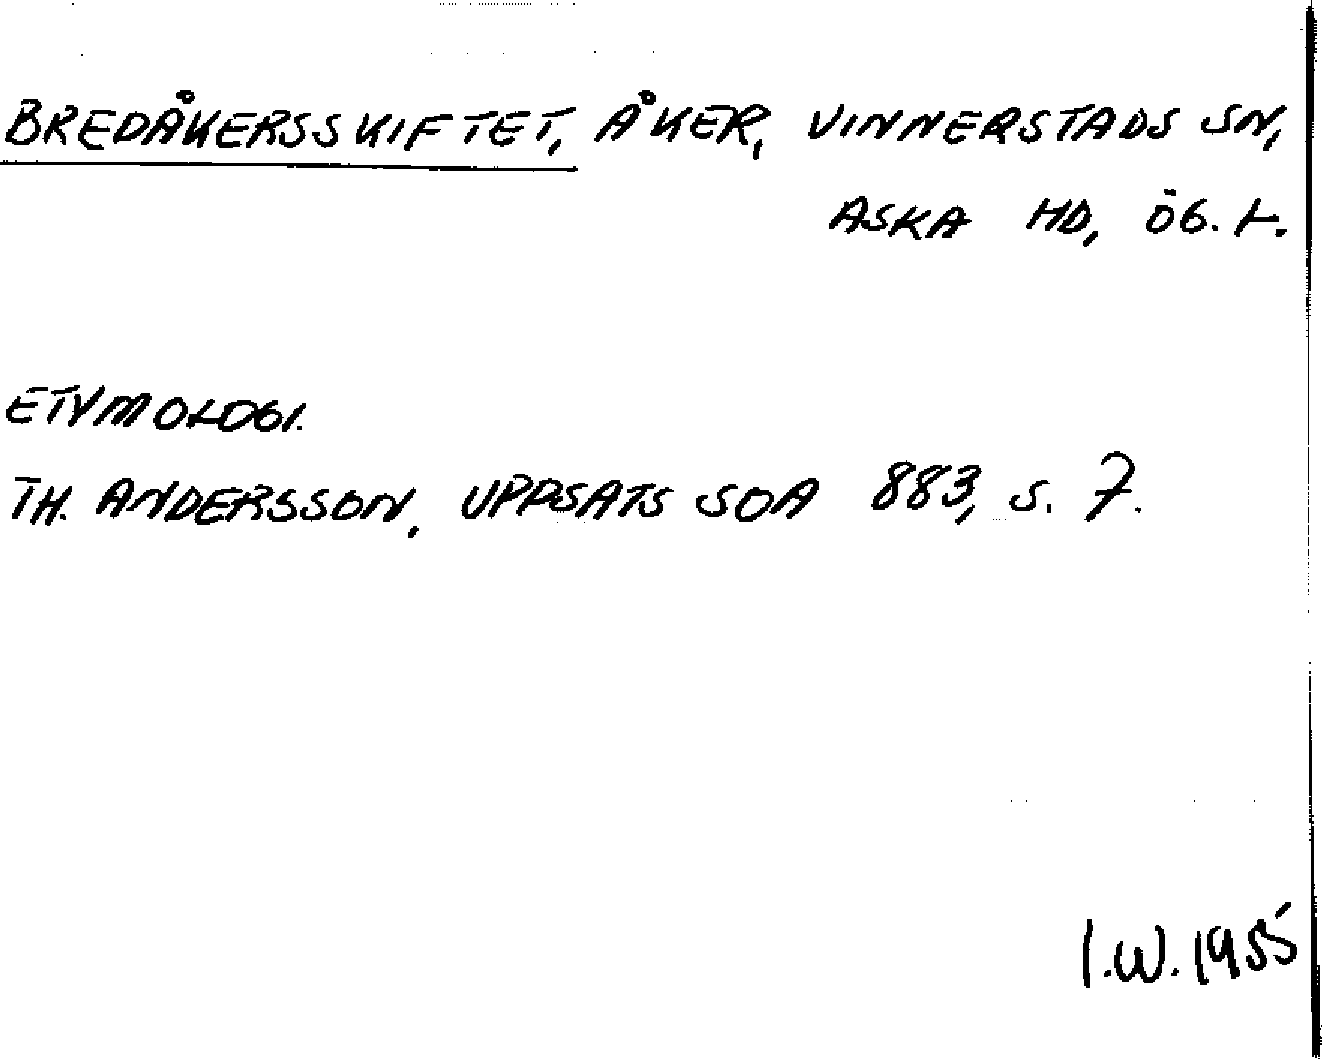 BREDÅKERSSKIFTET, ÅKER, VINNERSTADS SN,
ASKA HD, ÖG. L.
ETYMOLOGI.
TH. ANDERSSON, UPPSATS SOA 883, S. 7.
I.W. 1955